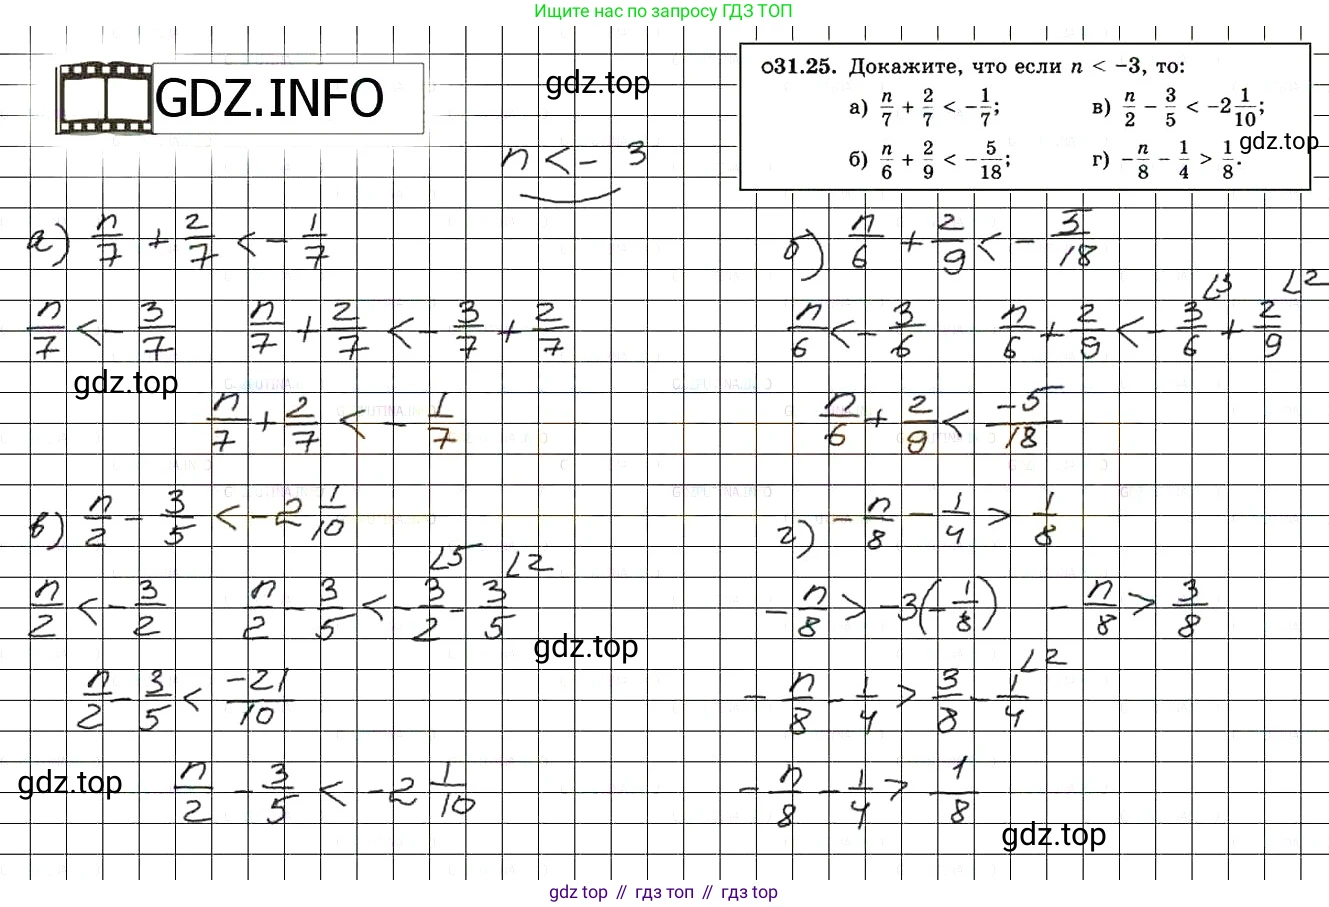 Ищите нас по запросу ГДЗ ТОП
GDZ.INFO
gdz.top
о31.25. Докажите, что если n < -3, то:
а) n/7 + 2/7 < -1/7;
в) n/2 - 3/5 < -2 1/10;
gdz.top
б) n/6 + 2/9 < -5/18;
г) -n/8 - 1/4 > 1/8.
n < - 3
а) n/7 + 2/7 < - 1/7
n/7 < - 3/7   n/7 + 2/7 < - 3/7 + 2/7
gdz.top
n/7 + 2/7 < - 1/7
б) n/6 + 2/9 < - 5/18
n/6 < - 3/6   n/6 + 2/9 < - 3/6 ∠3 + 2/9 ∠2
n/6 + 2/9 < -5/18
в) n/2 - 3/5 < -2 1/10
n/2 < - 3/2   n/2 - 3/5 < - 3/2 ∠5 - 3/5 ∠2
gdz.top
n/2 - 3/5 < -21/10
gdz.top
n/2 - 3/5 < -2 1/10
г) - n/8 - 1/4 > 1/8
- n/8 > -3(-1/8)   - n/8 > 3/8
- n/8 - 1/4 > 3/8 - 1/4 ∠2
- n/8 - 1/4 > 1/8
gdz.top
gdz top // гдз топ // gdz top